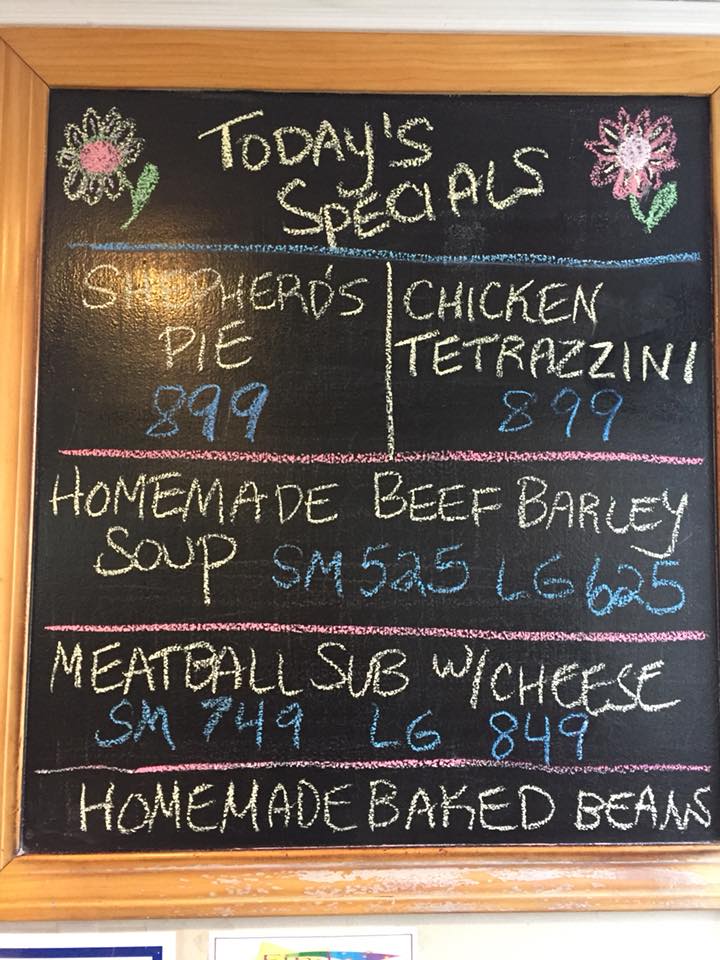 TODAY'S
SPECIALS
SHEPHERD'S
PIE
899
CHICKEN
TETRAZZINI
899
HOMEMADE BEEF BARLEY
SOUP SM 525 LG 625
MEATBALL SUB W/CHEESE
SM 749 LG 849
HOMEMADE BAKED BEANS